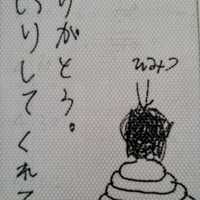 りしてくれて
りがとう。
ひみつ